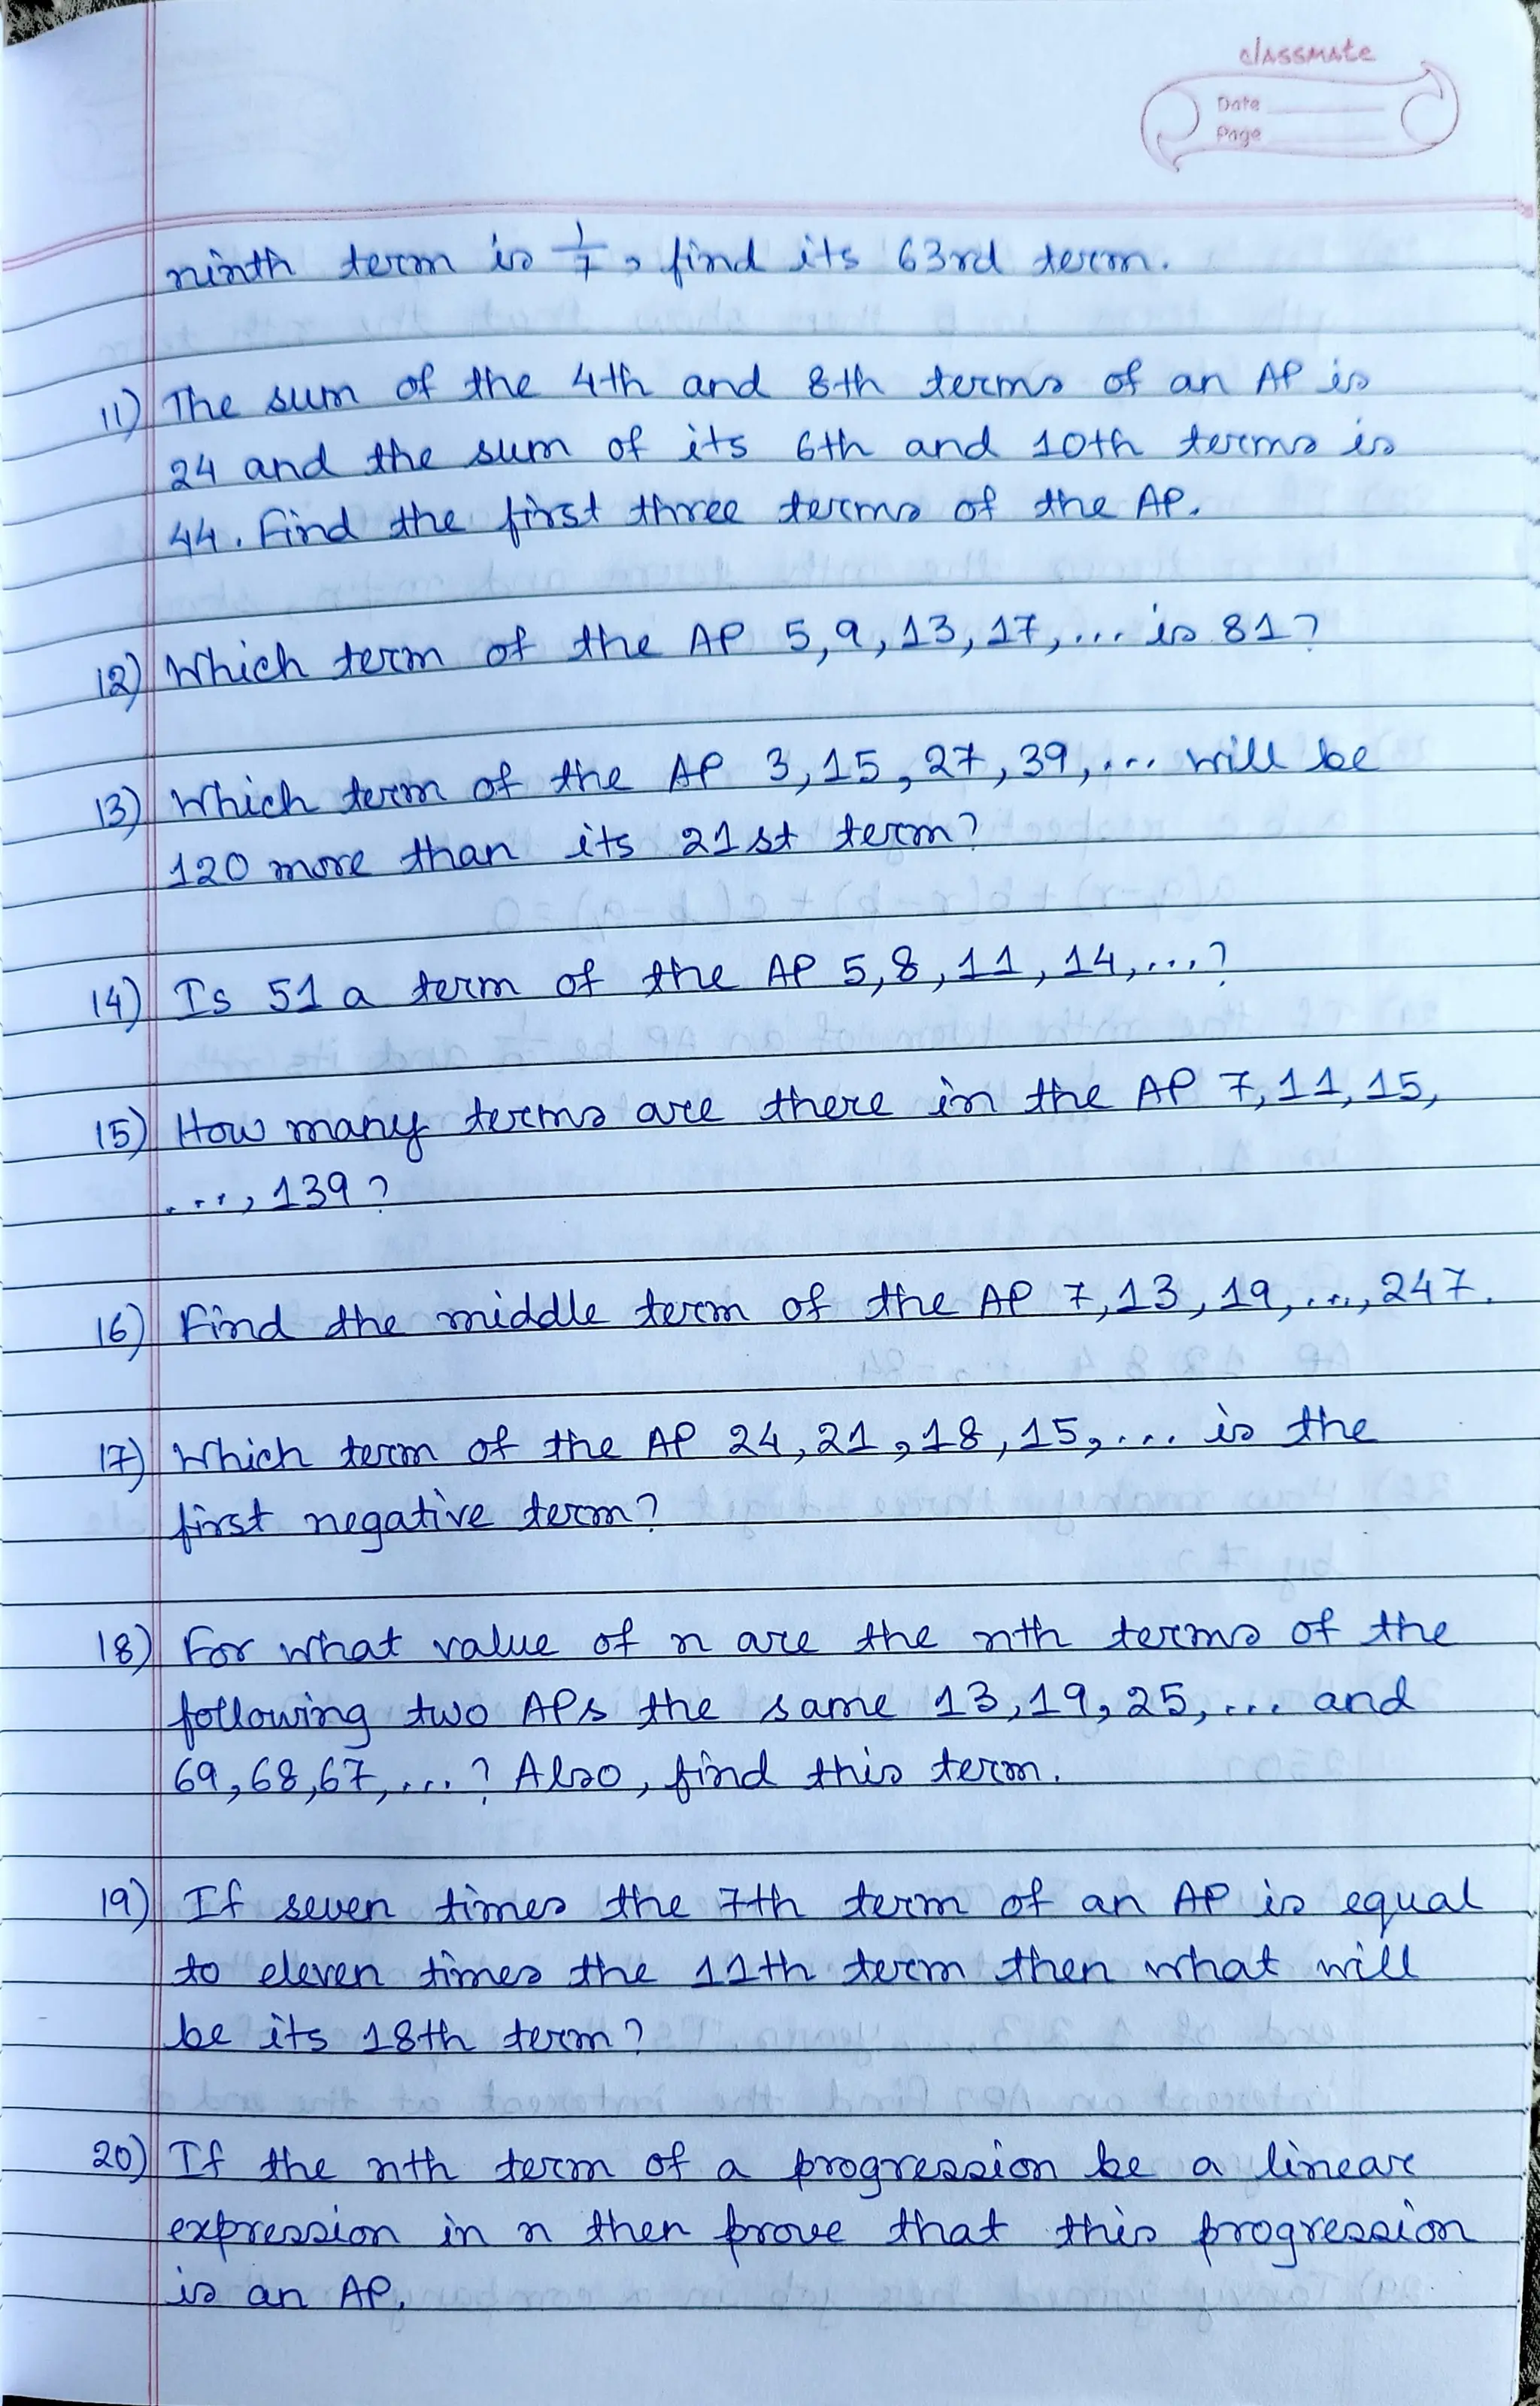 classmate
Date
Page
ninth term is 1/7, find its 63rd term.
11) The sum of the 4th and 8th terms of an AP is
24 and the sum of its 6th and 10th terms is
44. Find the first three terms of the AP.
12) Which term of the AP 5, 9, 13, 17, ... is 81?
13) Which term of the AP 3, 15, 27, 39, ... will be
120 more than its 21st term?
14) Is 51 a term of the AP 5, 8, 11, 14, ...?
15) How many terms are there in the AP 7, 11, 15,
..., 139?
16) Find the middle term of the AP 7, 13, 19, ..., 247.
17) Which term of the AP 24, 21, 18, 15, ... is the
first negative term?
18) For what value of n are the nth terms of the
following two APs the same 13, 19, 25, ... and
69, 68, 67, ...? Also, find this term.
19) If seven times the 7th term of an AP is equal
to eleven times the 11th term then what will
be its 18th term?
20) If the nth term of a progression be a linear
expression in n then prove that this progression
is an AP.